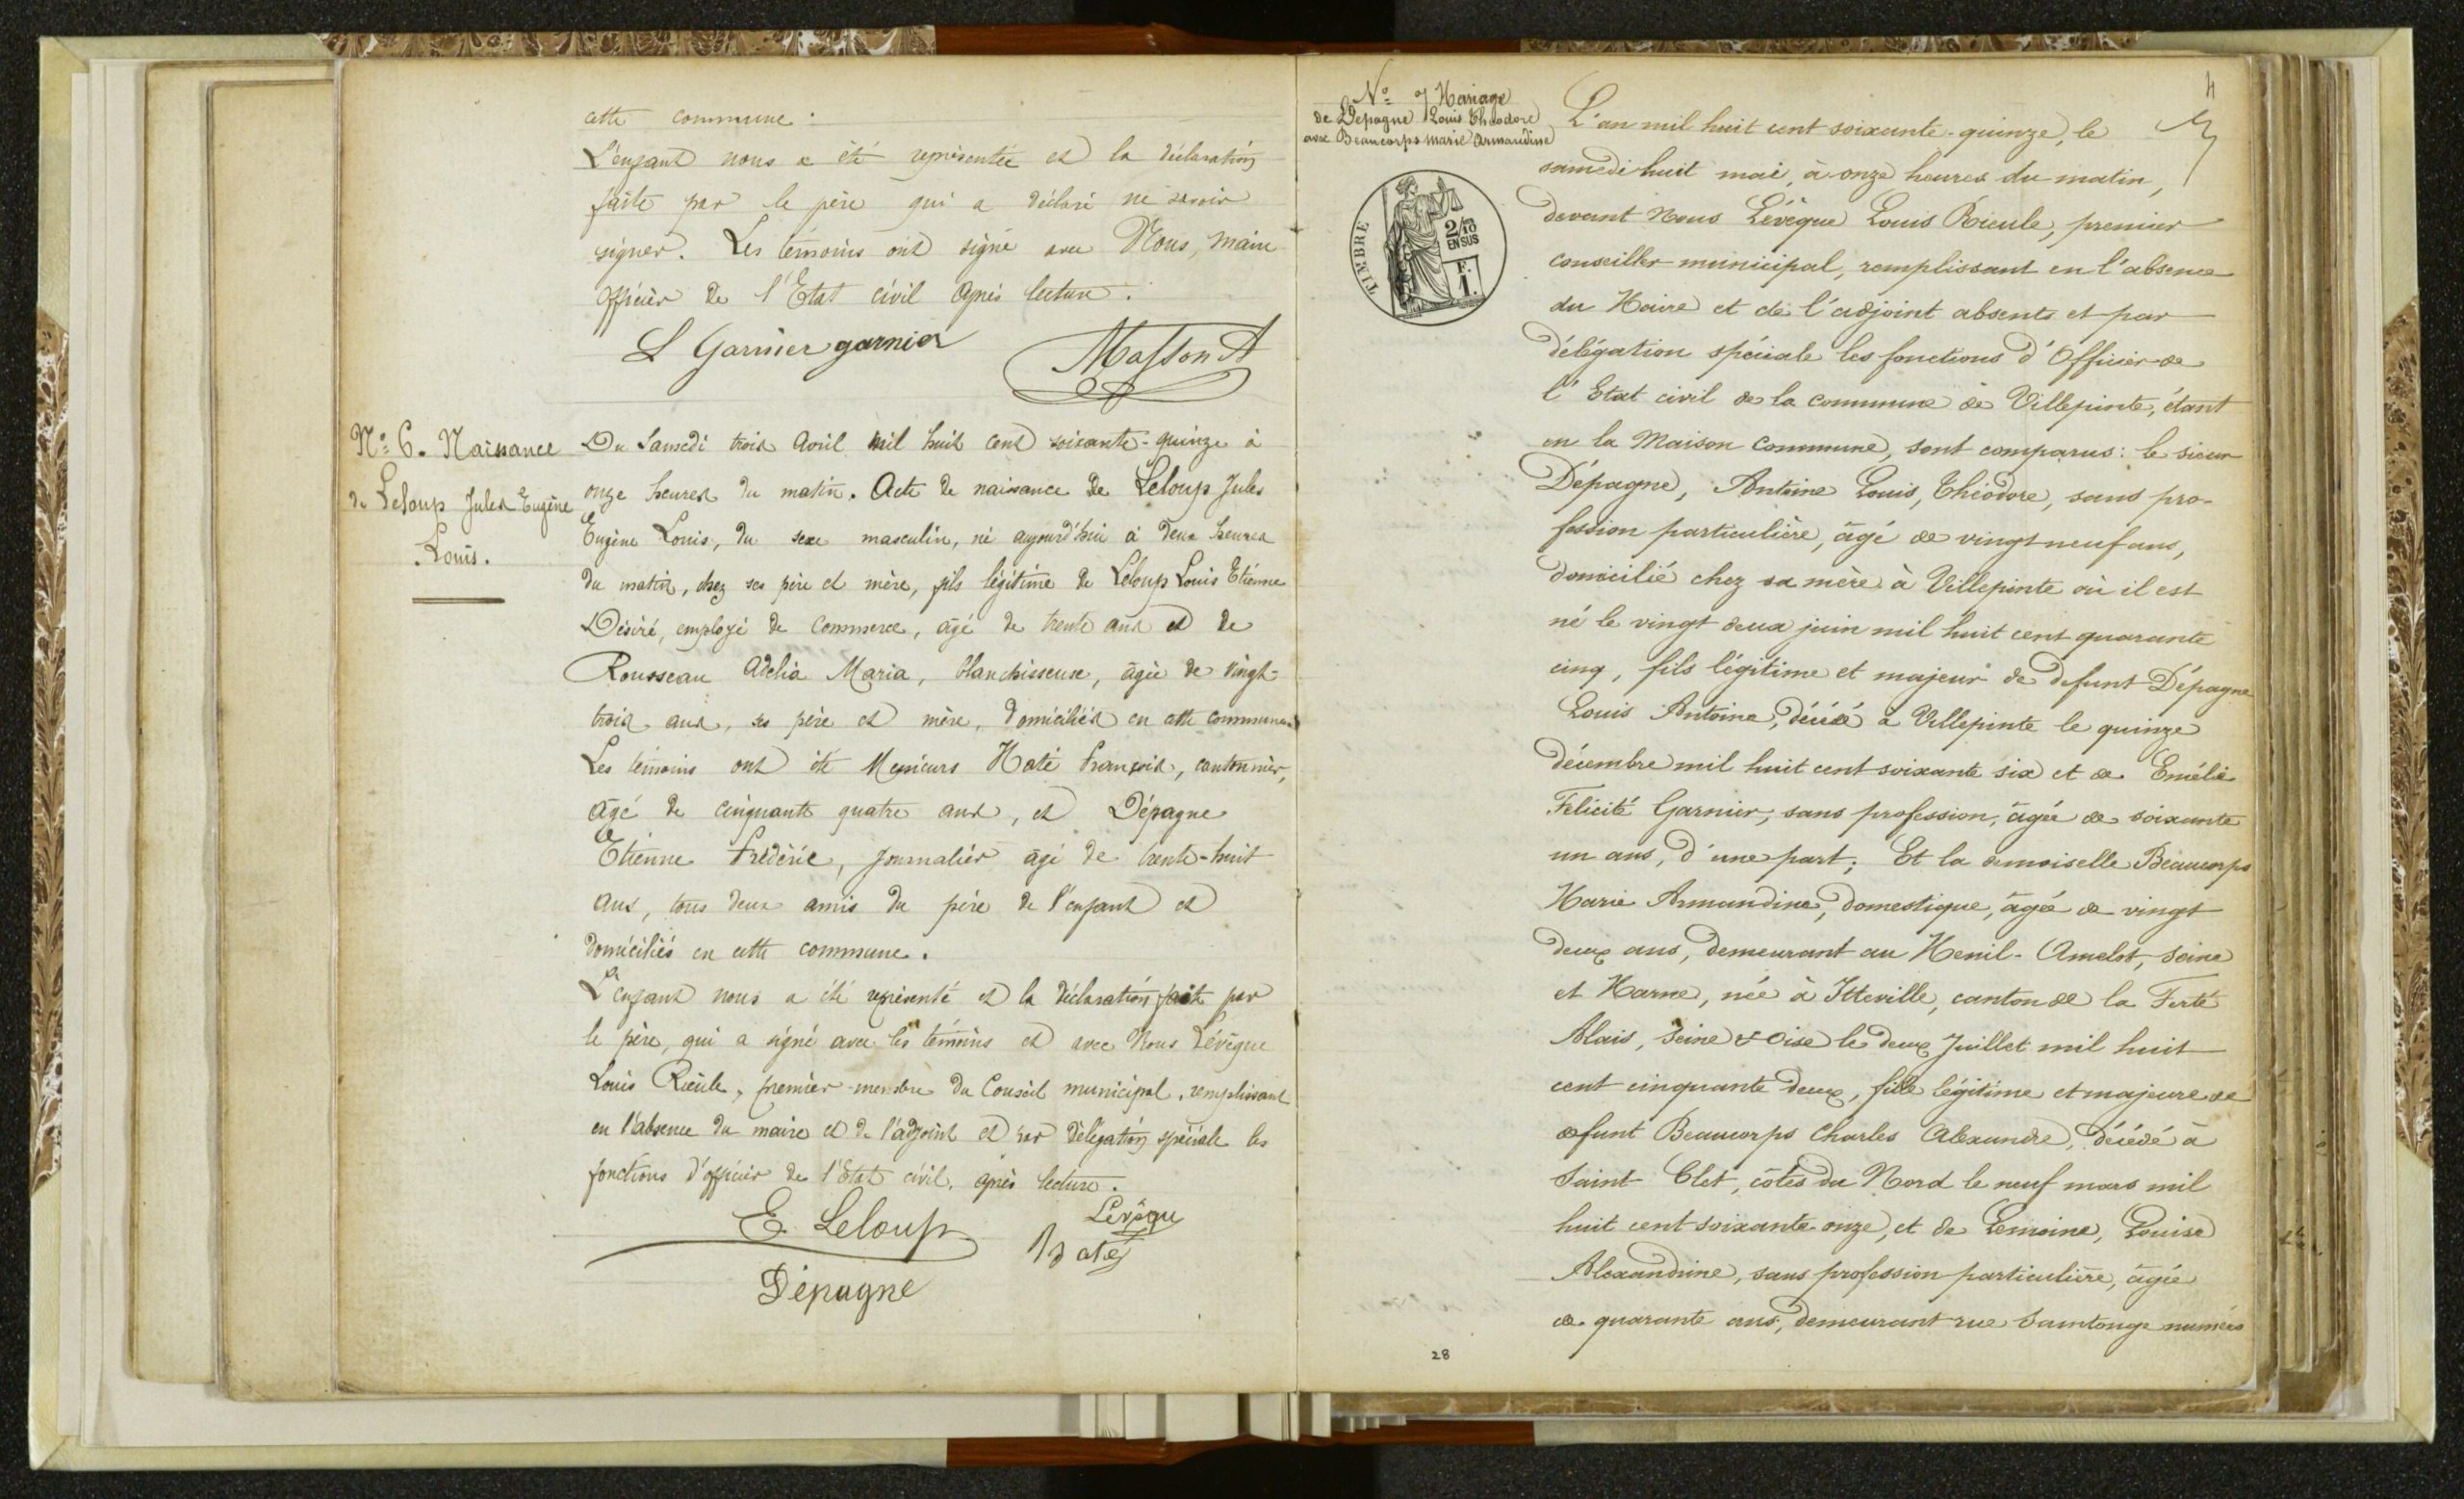 cette commune.
L'enfant nous a été représentée et la déclaration
faite par le père qui a déclaré ne savoir
signer. Les témoins ont signé avec Nous, maire
officier de l'Etat civil après lecture.
L Garnier garnier Masson A
N° 6. Naissance
de Leloup Jules Eugène
Louis.
Du Samedi trois Avril mil huit cent soixante-quinze à
onze heures du matin. Acte de naissance de Leloup Jules
Eugène Louis, du sexe masculin, né aujourd'hui à deux heures
du matin, chez ses père et mère, fils légitime de Leloup Louis Etienne
Désiré, employé de commerce, âgé de trente ans et de
Rousseau Adelia Maria, blanchisseuse, âgée de vingt-
trois ans, ses père et mère, domiciliés en cette commune.
Les témoins ont été Messieurs Haté François, cantonnier,
âgé de cinquante quatre ans, et Dépagne
Etienne Frédéric, journalier âgé de trente-huit
ans, tous deux amis du père de l'enfant et
domiciliés en cette commune.
L'enfant nous a été représenté et la déclaration fait par
le père, qui a signé avec les témoins et avec Nous Lévêque
Louis Rieule, premier membre du Conseil municipal, remplissant
en l'absence du maire et de l'adjoint et par délégation spéciale les
fonctions d'officier de l'Etat civil, après lecture.
E. Leloup Lévêque
Haté
Dépagne
N° 7 Mariage
de Depagne Louis Théodore
avec Beaucorps Marie Armandine
4
TIMBRE
2/10
EN SUS
F.
1.
L'an mil huit cent soixante-quinze, le
samedi huit mai, à onze heures du matin,
devant Nous Lévêque Louis Rieule, premier
conseiller municipal, remplissant en l'absence
du Maire et de l'adjoint absents et par
délégation spéciale les fonctions d'Officier de
l'Etat civil de la commune de Villepinte, étant
en la Maison commune, sont comparus: le sieur
Dépagne, Antoine Louis, Théodore, sans pro-
fession particulière, âgé de vingt neuf ans,
domicilié chez sa mère à Villepinte où il est
né le vingt deux juin mil huit cent quarante
cinq, fils légitime et majeur de defunt Dépagne
Louis Antoine, décédé à Villepinte le quinze
décembre mil huit cent soixante six et de Emélie
Felicité Garnier, sans profession, âgée de soixante
un ans, d'une part; Et la demoiselle Beaucorps
Marie Armandine, domestique, âgée de vingt
deux ans, demeurant au Menil-Amelot, Seine
et Marne, née à Itteville, canton de la Ferté
Alais, Seine & Oise le deux Juillet mil huit
cent cinquante deux, fille légitime et majeure de
defunt Beaucorps Charles Alexandre, décédé à
Saint Clet, côtes du Nord le neuf mars mil
huit cent soixante-onze, et de Lemoine, Louise
Alexandrine, sans profession particulière, âgée
de quarante ans, demeurant rue Saintonge numéro
28